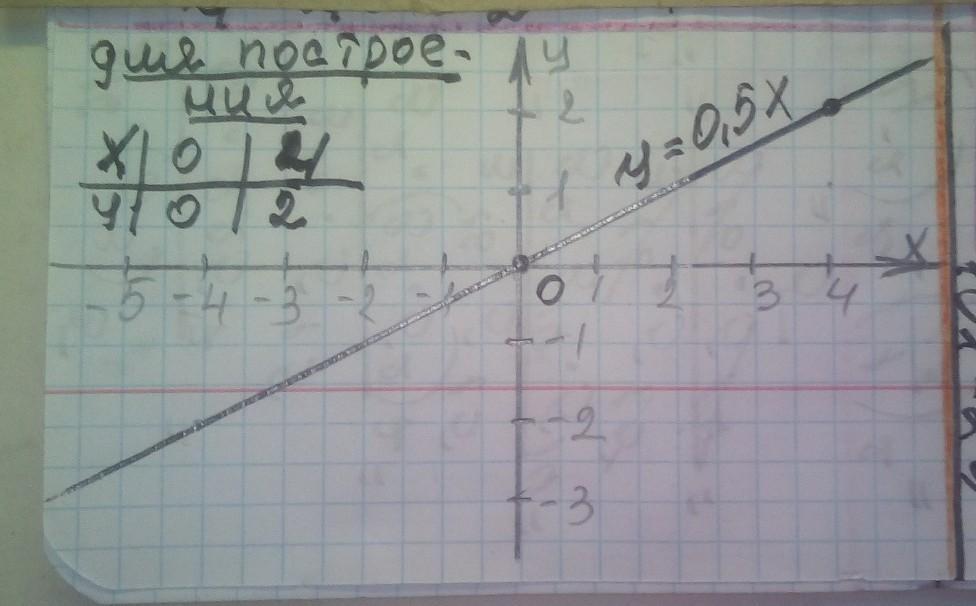 для построе-
ния
x | 0 | 4
y | 0 | 2
y
2
y=0,5x
1
x
-5 -4 -3 -2 -1 0 1 2 3 4
-1
-2
-3